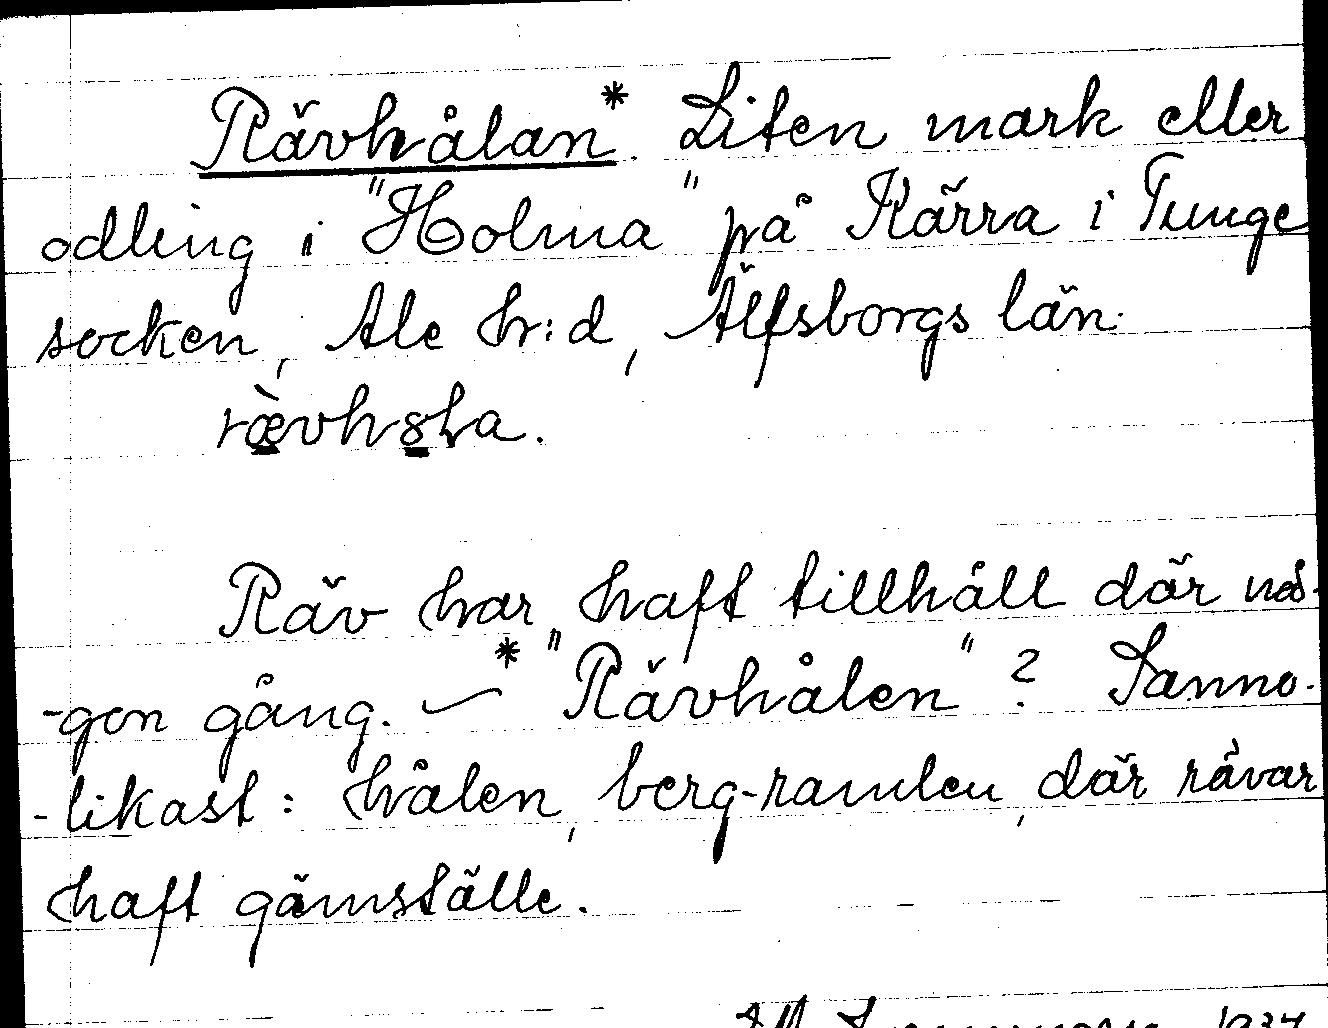 Rävhålan*. Liten mark eller
odling i "Holma" på Kärra i Tunge
socken, Ale hr:d, Älfsborgs län.
rævh8la.
Räv har haft tillhåll där nå-
-gon gång. — *"Rävhålen"? Sanno-
-likast: hålen, berg-ramlen, där rävar
haft gämställe.